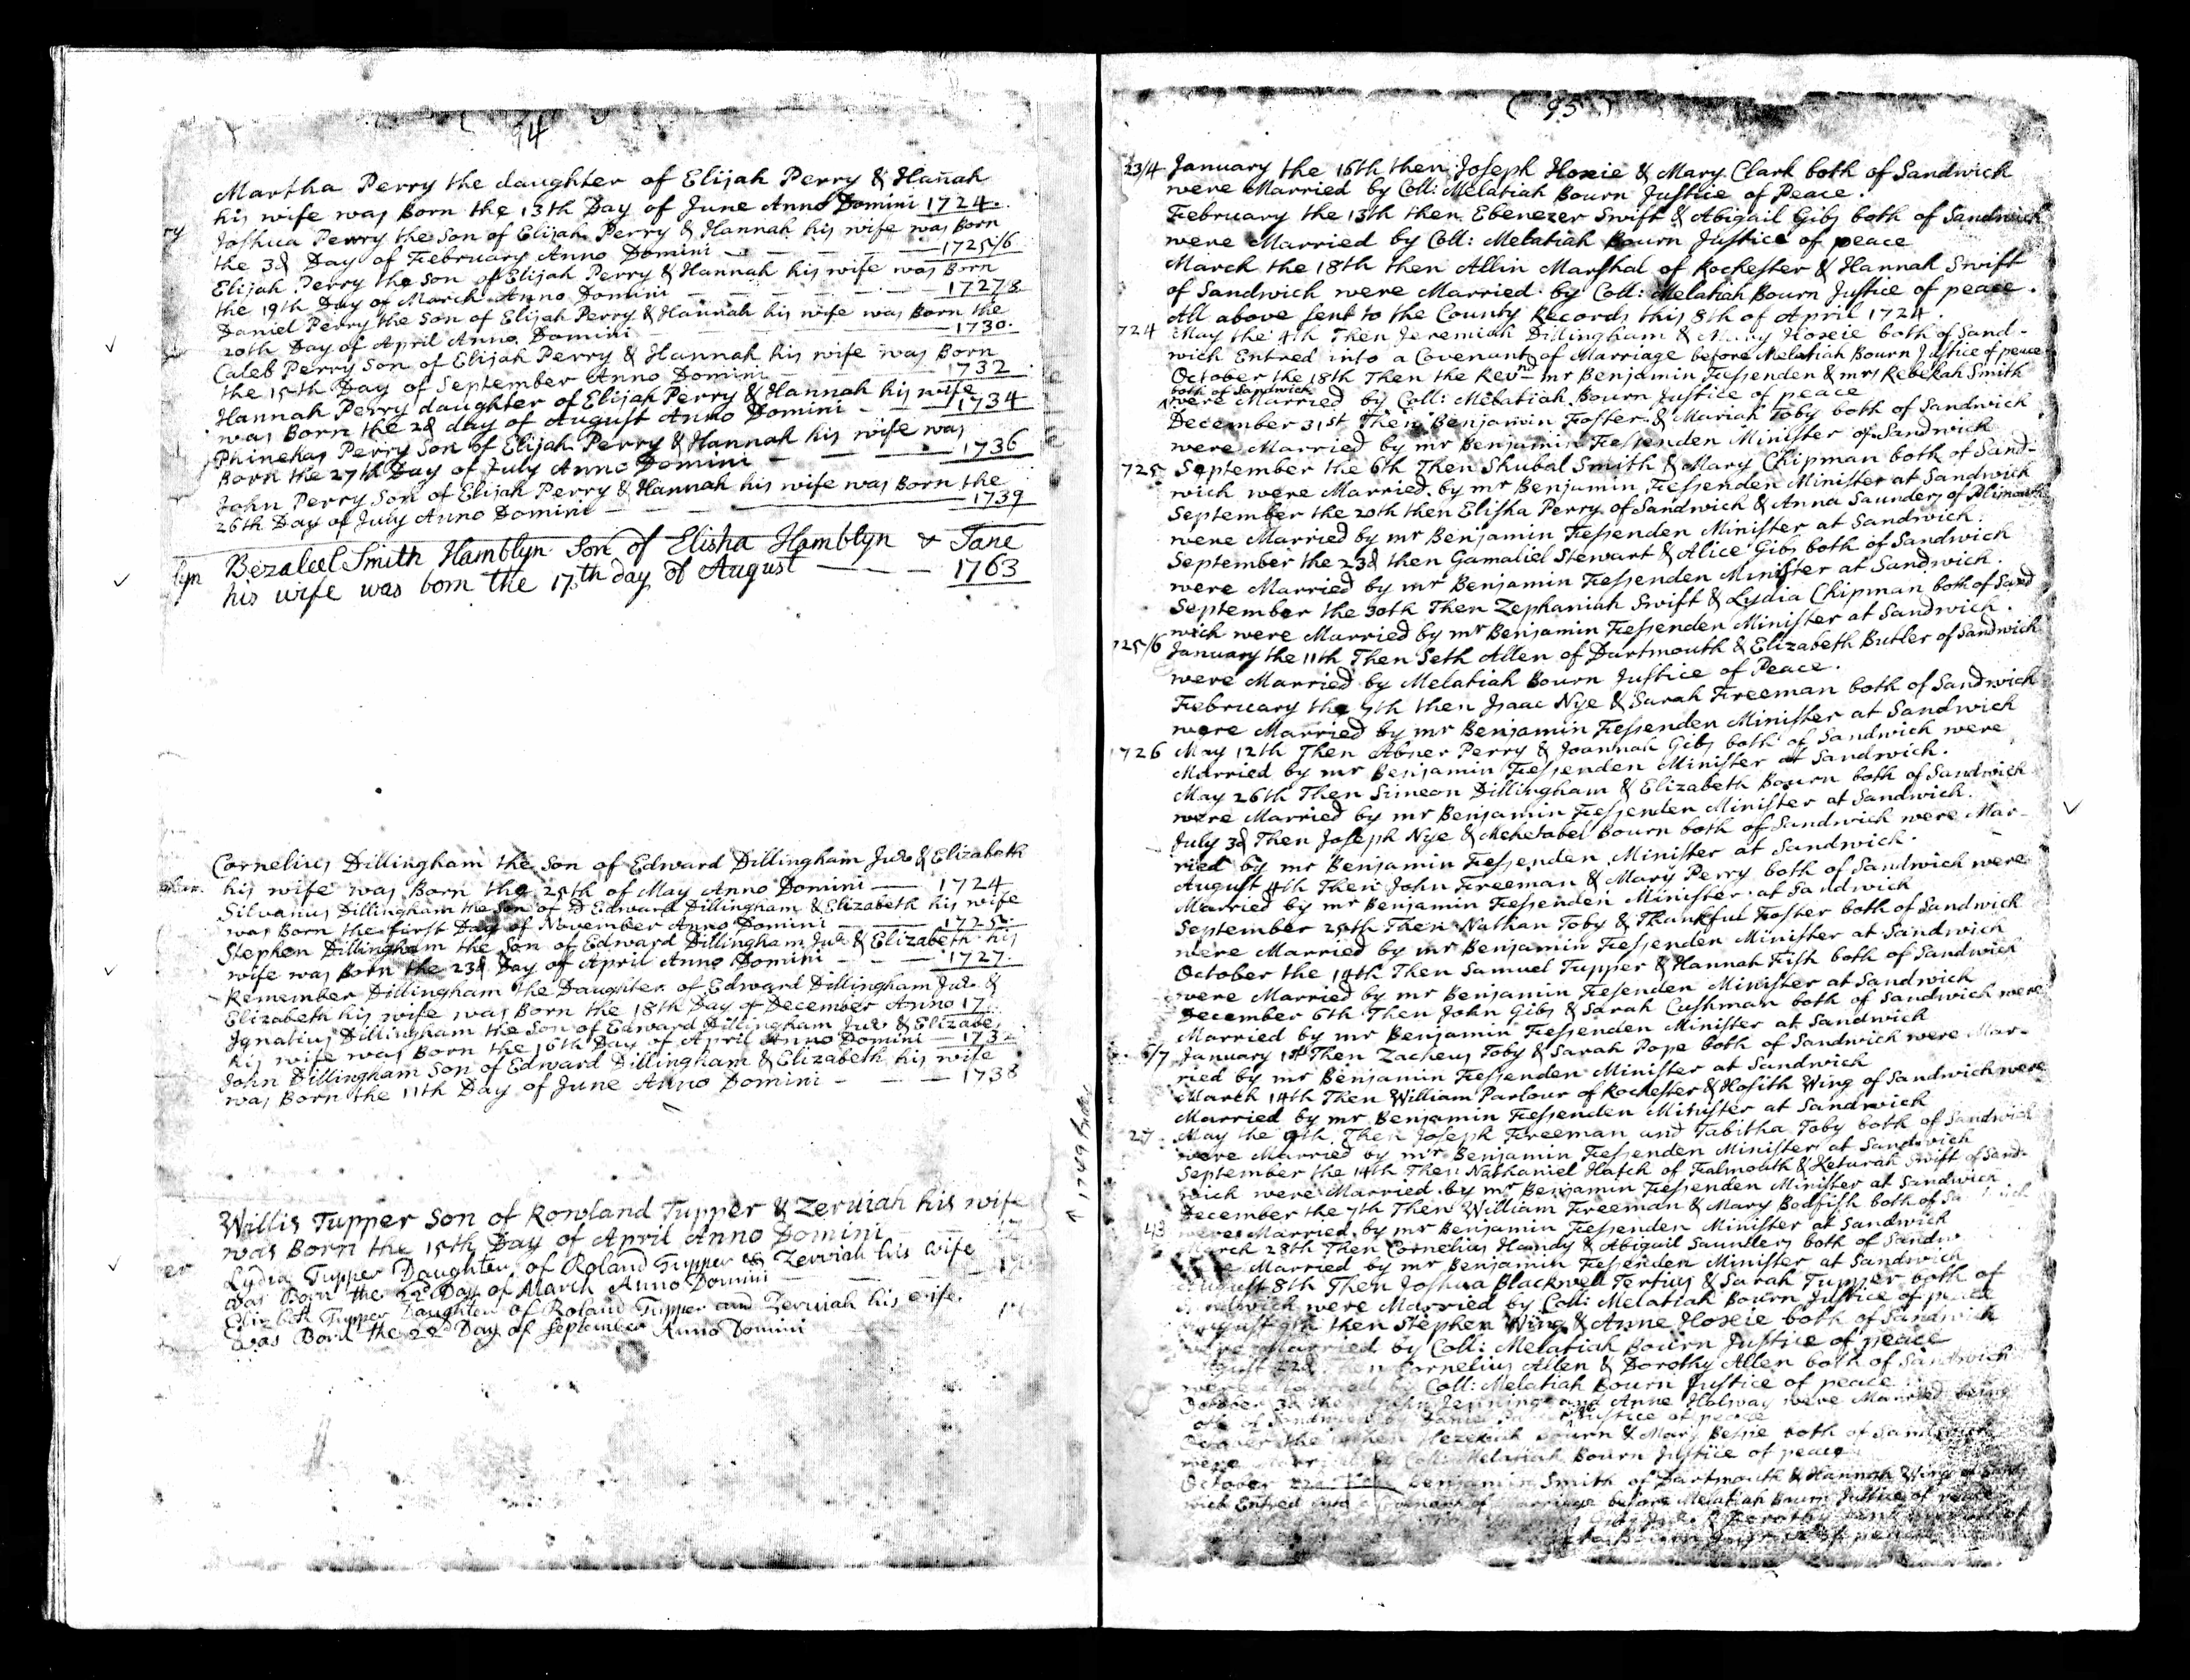 94
Martha Perry the daughter of Elijah Perry & Hañah
his wife was Born the 13th Day of June Anno Domini 1724.
ry
Joshua Perry the Son of Elijah Perry & Hannah his wife was Born
the 3d Day of February Anno Domini — — — — 1725/6
Elijah Perry the Son of Elijah Perry & Hannah his wife was Born
the 19th Day of March Anno Domini — — — — 17278
Daniel Perry the Son of Elijah Perry & Hannah his wife was Born the
20th Day of April Anno Domini — — — — 1730.
Caleb Perry Son of Elijah Perry & Hannah his wife was Born
the 15th Day of September Anno Domini — — — 1732
Hannah Perry daughter of Elijah Perry & Hannah his wife
was Born the 2d day of August Anno Domini — — 1734
Phinehas Perry Son of Elijah Perry & Hannah his wife was
Born the 27th Day of July Anno Domini — — — 1736
John Perry Son of Elijah Perry & Hannah his wife was Born the
26th Day of July Anno Domini — — — 1739
lyn
Bezaleel Smith Hamblyn Son of Elisha Hamblyn & Jane
his wife was born the 17th day of August — — — 1763
Cornelius Dillingham the Son of Edward Dillingham Junr & Elizabeth
his wife was Born the 25th of May Anno Domini — 1724
Silvanus Dillingham the Son of Edward Dillingham & Elizabeth his wife
was Born the first Day of November Anno Domini — — 1725.
Stephen Dillingham the Son of Edward Dillingham Junr & Elizabeth his
wife was Born the 23d Day of April Anno Domini — — 1727.
Remember Dillingham the Daughter of Edward Dillingham Junr &
Elizabeth his wife was Born the 18th Day of December Anno 17
Ignatius Dillingham the Son of Edward Dillingham Junr & Elizabe
his wife was Born the 16th Day of April Anno Domini — 173
John Dillingham Son of Edward Dillingham & Elizabeth his wife
was Born the 11th Day of June Anno Domini — — 1738
Willis Tupper Son of Rowland Tupper & Zeruiah his wife
was Born the 15th Day of April Anno Domini 17
er
Lydia Tupper Daughter of Roland Tupper & Zerviah his wife
was Born the 22d Day of March Anno Domini
Elizabeth Tupper Daughter of Roland Tupper and Zeruiah his wife.
was Born the 22d Day of September Anno Domini
( 95 )
23/4 January the 16th then Joseph Hoxie & Mary Clark both of Sandwich
were Married by Coll: Melatiah Bourn Justice of Peace.
February the 13th then Ebenezer Swift & Abigail Gibs both of Sandwich
were Married by Coll: Melatiah Bourn Justice of peace
March the 18th then Allin Marshal of Rochester & Hannah Swift
of Sandwich were Married by Coll: Melatiah Bourn Justice of peace.
All above sent to the County Records this 8th of April 1724.
724 May the 4th Then Jeremiah Dillingham & Hoxie both of Sand-
wich Entred into a Covenant of Marriage before Melatiah Bourn Justice of peace
October the 18th Then the Revnd mr Benjamin Fessenden & mrs Rebekah Smith
both of Sandwich
were Married by Coll: Melatiah Bourn Justice of peace
December 31st Then Benjamin Foster & Mariah Toby both of Sandwich
were Married by mr Benjamin Fessenden Minister of Sandwich
725 September the 6th Then Shubal Smith & Mary Chipman both of Sand-
wich were Married by mr Benjamin Fessenden Minister at Sandwich
September the 20th then Elisha Perry of Sandwich & Anna Saunders of Plimouth
were Married by mr Benjamin Fessenden Minister at Sandwich.
September the 23d then Gamaliel Stewart & Alice Gibs both of Sandwich
were Married by mr Benjamin Fessenden Minister at Sandwich.
September the 30th Then Zephaniah Swift & Lydia Chipman both of Sand
wich were Married by mr Benjamin Fessenden Minister at Sandwich.
725/6 January the 11th Then Seth Allen of Dartmouth & Elizabeth Butler of Sandwich
were Married by Melatiah Bourn Justice of Peace.
February the 9th then Isaac Nye & Sarah Freeman both of Sandwich
were Married by mr Benjamin Fessenden Minister at Sandwich
1726 May 12th Then Abner Perry & Joannah Gibs both of Sandwich were
Married by mr Benjamin Fessenden Minister at Sandwich.
May 26th Then Simeon Dillingham & Elizabeth Bourn both of Sandwich
were Married by mr Benjamin Fessenden Minister at Sandwich.
July 3d Then Joseph Nye & Mehetabel Bourn both of Sandwich were Mar-
ried by mr Benjamin Fessenden Minister at Sandwich.
August 4th Then John Freeman & Mary Perry both of Sandwich were
Married by mr Benjamin Fessenden Minister at Sandwich
September 25th Then Nathan Toby & Thankful Foster both of Sandwich
were Married by mr Benjamin Fessenden Minister at Sandwich
October the 14th Then Samuel Tupper & Hannah Fish both of Sandwich
were Married by mr Benjamin Fessenden Minister at Sandwich
December 6th Then John Gibs & Sarah Cushman both of Sandwich were
Married by mr Benjamin Fessenden Minister at Sandwich
6/7 January 1st Then Zacheus Toby & Sarah Pope both of Sandwich were Mar-
ried by mr Benjamin Fessenden Minister at Sandwich
March 14th Then William Parlour of Rochester & Hosith Wing of Sandwich were
Married by mr Benjamin Fessenden Minister at Sandwich
27 May the 9th Then Joseph Freeman and Tabitha Toby both of Sandwich
were Married by mr Benjamin Fessenden Minister at Sandwich
September the 14th Then Nathaniel Hatch of Falmouth & Keturah Swift of Sand-
wich were Married by mr Benjamin Fessenden Minister at Sandwich.
December the 7th Then William Freeman & Mary Bodfish both of
were Married by mr Benjamin Fessenden Minister at Sandwich
March 28th Then Cornelius Handy & Abigail Saunders both of Sandw
Married by mr Benjamin Fessenden Minister at Sandwich
August 8th Then Joshua Blackwell Tertius & Sarah Tupper both of
Sandwich were Married by Coll: Melatiah Bourn Justice of peace
August then Stephen Wing & Anne Hoxie both of Sandwich
were Married by Coll: Melatiah Bourn Justice of peace
August 22d Then Cornelius Allen & Dorothy Allen both of Sandwich
were Married by Coll: Melatiah Bourn Justice of peace
October 3d then John Jennings and Anne Holway were Married being
both of Sandwich by Justice of peace
October the then Hezekiah Bourn & Mary Besse both of Sandwich
were Married by Coll: Melatiah Bourn Justice of peace
October 22d Benjamin Smith of Dartmouth & Hannah Wing of Sand
wich Entred into a Covenant of Marriage before Melatiah Bourn Justice of peace
Dorothy
Bourn Justice of peace